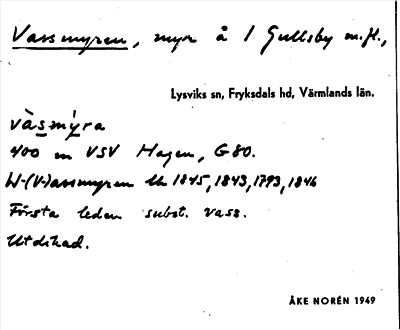 Vassmyren, myr å 1 Gullsby m.fl.,
Lysviks sn, Fryksdals hd, Värmlands län.
vàsmýra
400 m VSV Hagen, G80.
W-(V-)assmyren Lh 1845, 1843, 1793, 1846
Första leden subst. vass.
Utdikad.
ÅKE NORÉN 1949